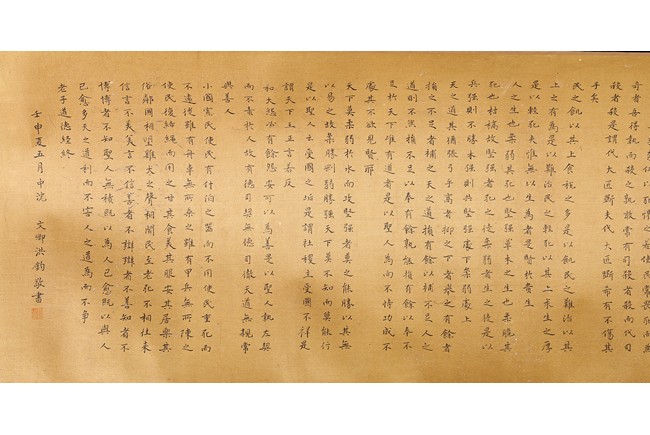 奇者吾得執而殺之孰敢常有司殺者殺而代司
殺者殺是謂代大匠斲夫代大匠斲希有不傷其
手矣
民之飢以其上食稅之多是以飢民之難治以其
上之有為是以難治民之輕死以其上求生之厚
是以輕死夫惟無以生為者是賢於貴生
人之生也柔弱其死也堅強草木之生也柔脆其
死也枯槁故堅強者死之徒柔弱者生之徒是以
兵強則不勝木強則共堅強處下柔弱處上
天之道其猶張弓乎高者抑之下者舉之有餘者
損之不足者補之天之道損有餘以補不足人之
道則不然損不足以奉有餘孰能損有餘以奉不
足於天下唯有道者是以聖人為而不恃功成不
處其不欲見賢耶
天下莫柔弱於水而攻堅強者莫之能勝以其無
以易之故柔勝剛弱勝強天下莫不知而莫能行
是以聖人云受國之垢是謂社稷主受國不祥是
謂天下王正言若反
和大怨必有餘怨安可以為善是以聖人執左契
而不責於人故有德司契無德司徹天道無親常
與善人
小國寡民使民有什伯之器而不用使民重死而
不遠徙雖有舟車無所乘之雖有甲兵無所陳之
使民復結繩而用之甘其食美其服安其居樂其
俗鄰國相望雞犬之聲相聞民至老死不相往來
信言不美美言不信善者不辯辯者不善知者不
博博者不知聖人無積既以為人已愈既以與人
已愈多天之道利而不害人之道為而不爭
老子道德經終
壬申夏五月中浣 文卿洪鈞敬書